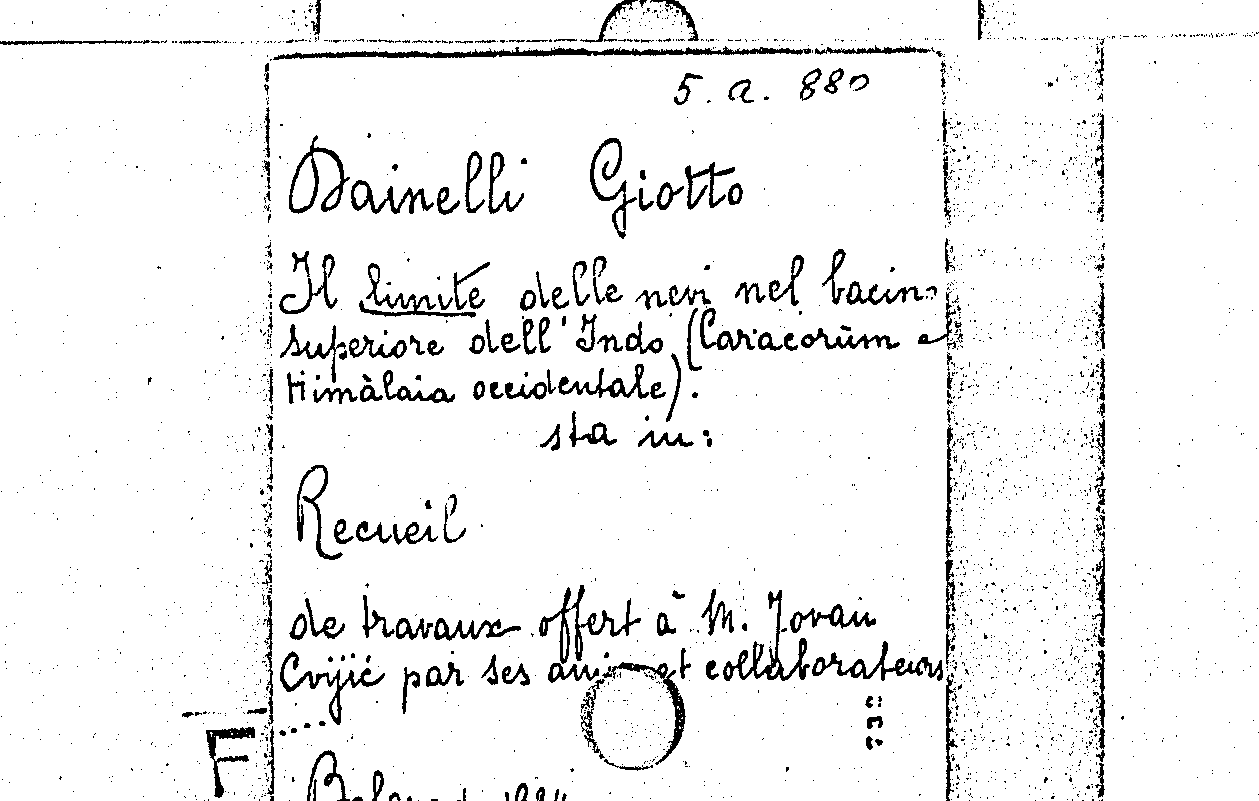 5. a. 880
Dainelli Giotto
Il limite delle nevi nel bacino
superiore dell'Indo (Caracorùm e
Himàlaia occidentale).
sta in:
Recueil
de travaux offert à M. Jovan
Cvijić par ses amis et collaborateurs
F